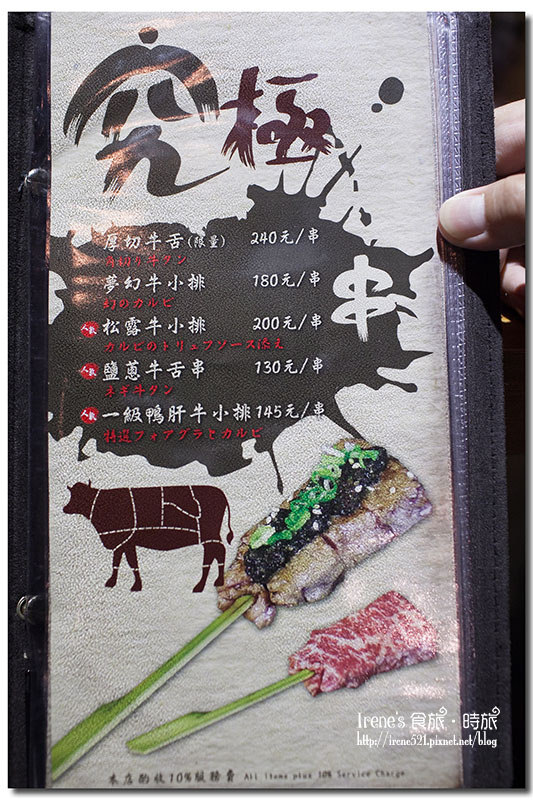 究極
串
厚切牛舌(限量) 240元/串
夢幻牛小排 180元/串
幻のカルビ
人氣 松露牛小排 200元/串
カルビのトリュフソース添え
人氣 鹽蔥牛舌串 130元/串
ネギ牛タン
人氣 一級鴨肝牛小排 145元/串
特選フォアグラとカルビ
Irene's 食旅・時旅
http://irene521.pixnet.net/blog
本店酌收10%服務費 All items plus 10% Service Charge